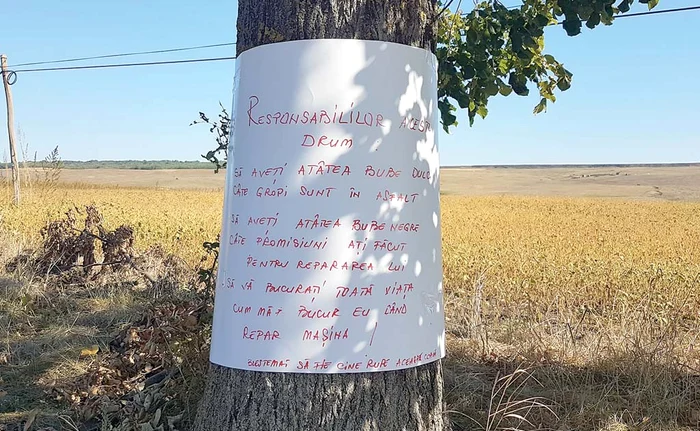 RESPONSABILILOR ACESTUI
DRUM
SĂ AVEȚI ATÂTEA BUBE DULCI
CÂTE GROPI SUNT ÎN ASFALT
SĂ AVEȚI ATÂTEA BUBE NEGRE
CÂTE PROMISIUNI AȚI FĂCUT
PENTRU REPARAREA LUI
SĂ VĂ BUCURAȚI TOATĂ VIAȚA
CUM MĂ BUCUR EU CÂND
REPAR MAȘINA !
BLESTEMAT SĂ FIE CINE RUPE ACEASTĂ